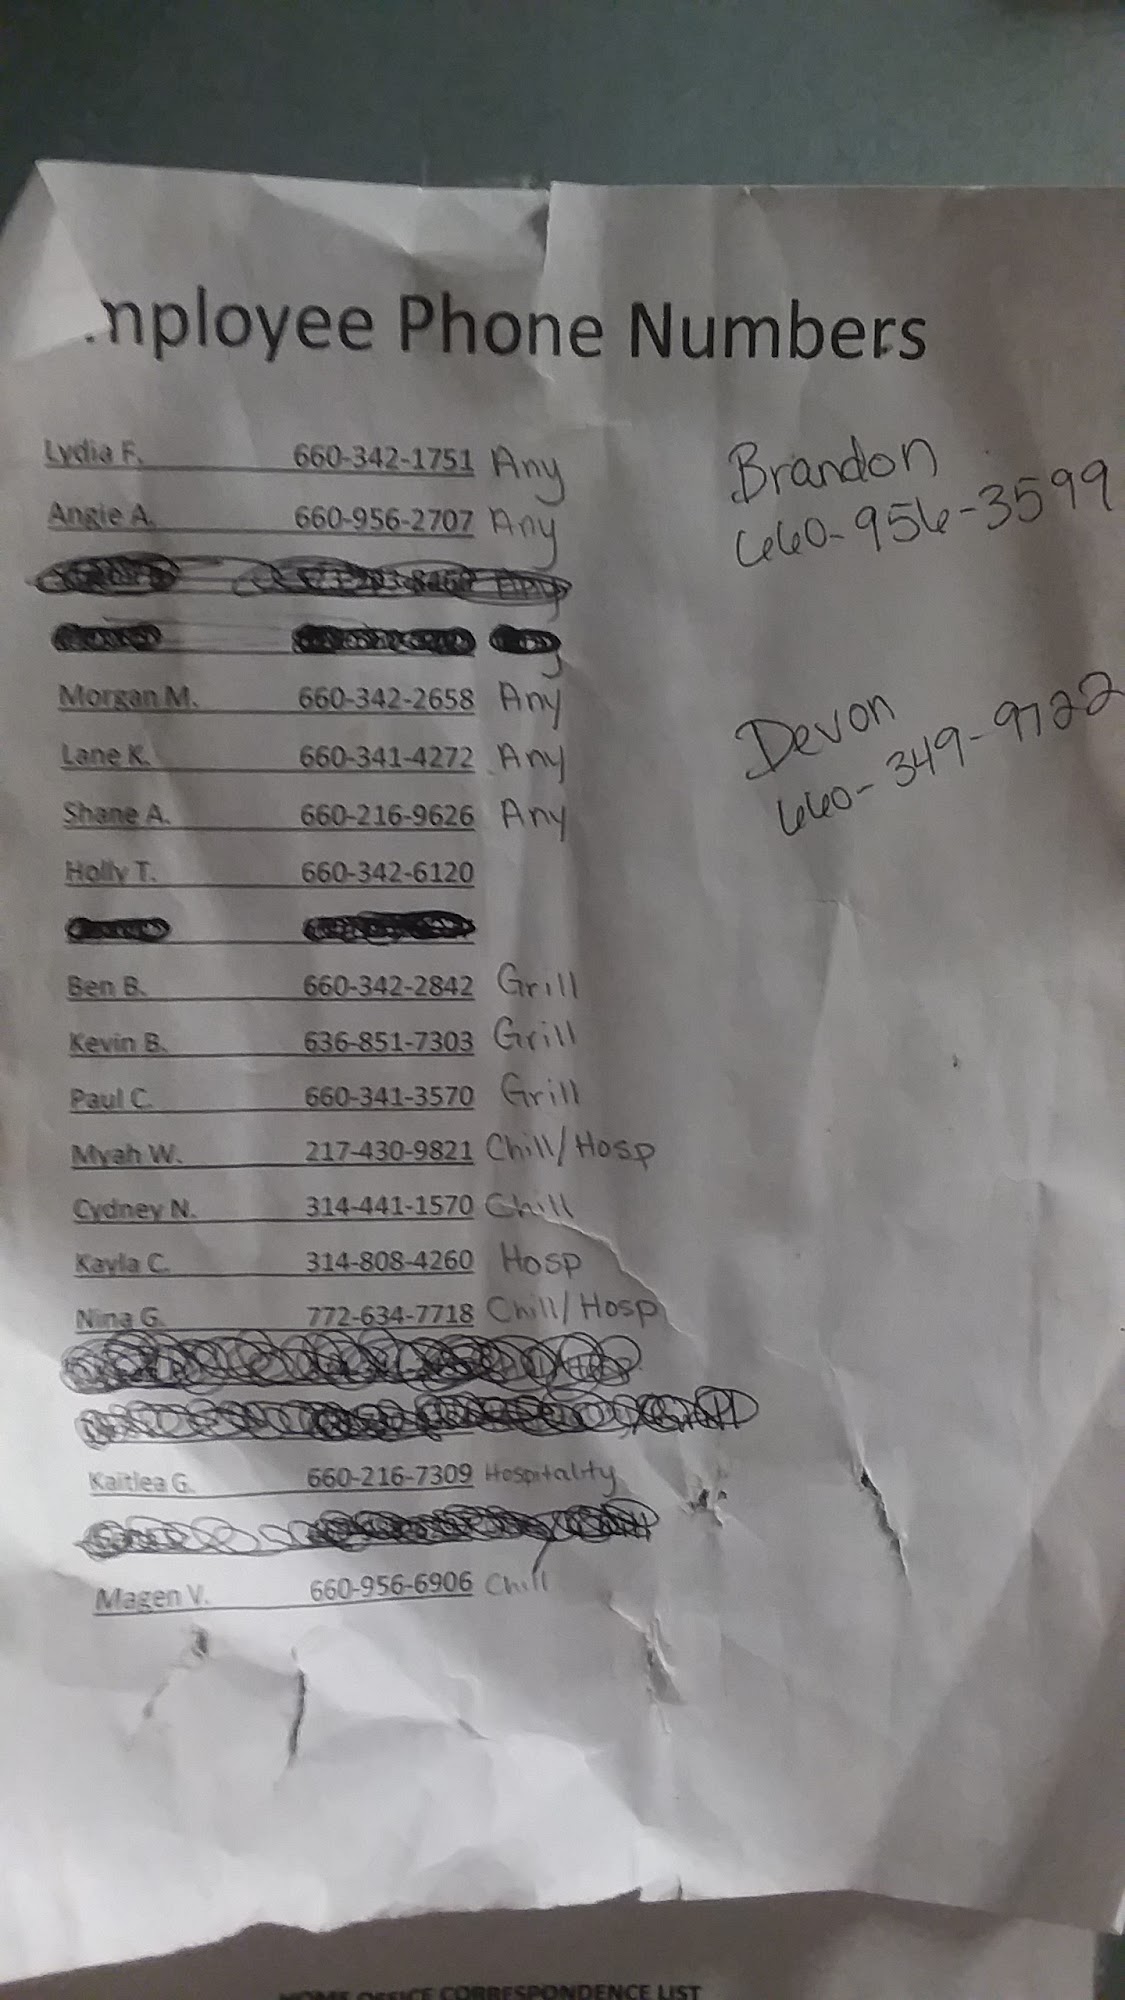 mployee Phone Numbers
Lydia F. 660-342-1751 Any
Angie A. 660-956-2707 Any
Morgan M. 660-342-2658 Any
Lane K. 660-341-4272 Any
Shane A. 660-216-9626 Any
Holly T. 660-342-6120
Ben B. 660-342-2842 Grill
Kevin B. 636-851-7303 Grill
Paul C. 660-341-3570 Grill
Myah W. 217-430-9821 Chill/Hosp
Cydney N. 314-441-1570 Chill
Kayla C. 314-808-4260 Hosp
Nina G. 772-634-7718 Chill/Hosp
Kaitlea G. 660-216-7309 Hospitality
Magen V. 660-956-6906 Chill
Brandon
660-956-3599
Devon
660-349-9722
HOME OFFICE CORRESPONDENCE LIST